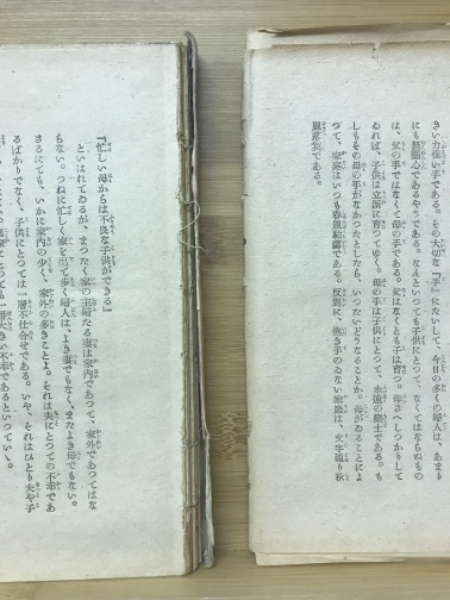 きい力強い手である。その大切な『手』にたいして、今日の多くの婦人は、あまり
にも無關心であるやうである。なんといつても子供にとつて、なくてはならぬもの
は、父の手ではなくて母の手である。父はなくとも子は育つ。母さへしつかりして
ゐれば、子供は立派に育つてゆく。母の手は子供にとつて、永遠の樂土である。も
しもその母の手がなかつたとしたら、いつたいどうなることか。母がゐることによ
つて、家庭はいつも春風駘蕩である。反對に、抱き手のゐない家庭は、文字通り秋
風落寞である。
『忙しい母からは不良な子供ができる』
といはれてゐるが、まつたく家の主婦たる妻は家内であつて、家外であつてはな
らない。つねに忙しく家を出て歩く婦人は、よき妻でもなく、またよき母でもない。
さるにても、いかに家内の少く、家外の多きことよ。それは夫にとつての不幸であ
るばかりでなく、子供にとつては一層不仕合せである。いや、それはひとり夫や子
にとつても一大きの不幸であるといつていゝ。